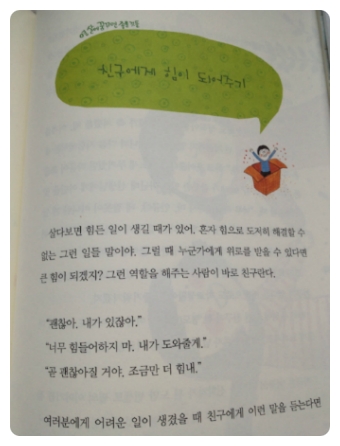 친구에게 힘이 되어주기
살다보면 힘든 일이 생길 때가 있어. 혼자 힘으로 도저히 해결할 수
없는 그런 일들 말이야. 그럴 때 누군가에게 위로를 받을 수 있다면
큰 힘이 되겠지? 그런 역할을 해주는 사람이 바로 친구란다.
“괜찮아. 내가 있잖아.”
“너무 힘들어하지 마. 내가 도와줄게.”
“곧 괜찮아질 거야. 조금만 더 힘내.”
여러분에게 어려운 일이 생겼을 때 친구에게 이런 말을 듣는다면